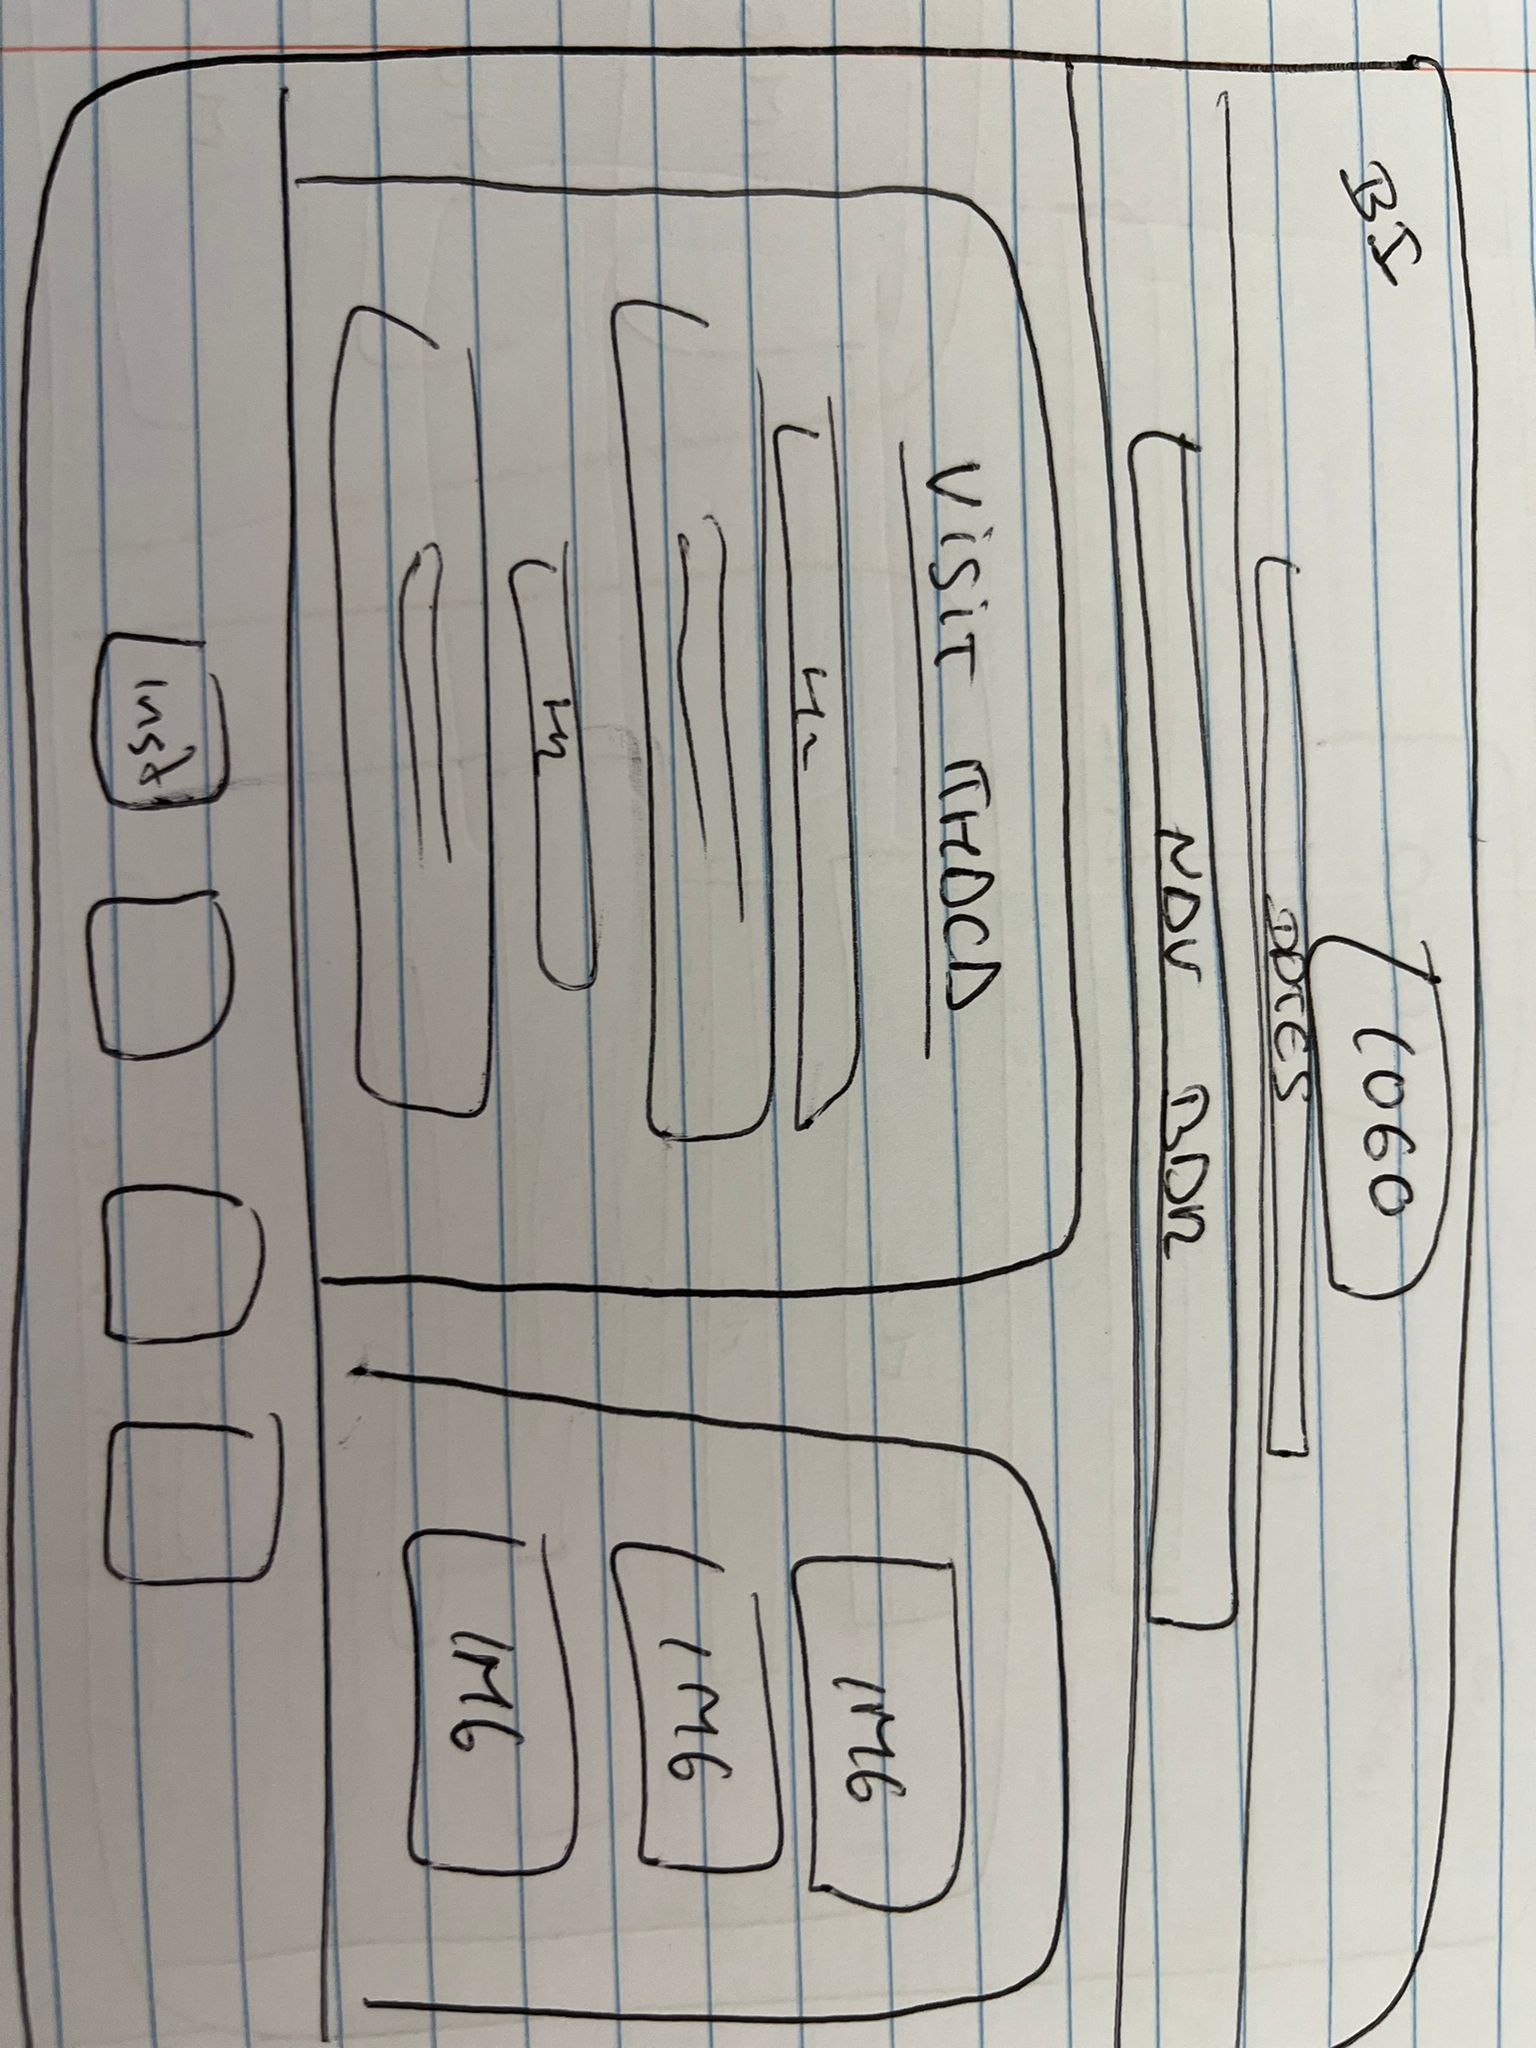 BI
LOGO
DATES
NAV BAR
VISIT ITHACA
H2
H2
IMG
IMG
IMG
inst